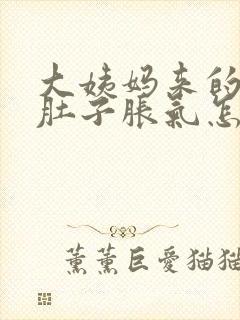 大姨妈来的
肚子胀氣怎
薰薰巨愛猫猫